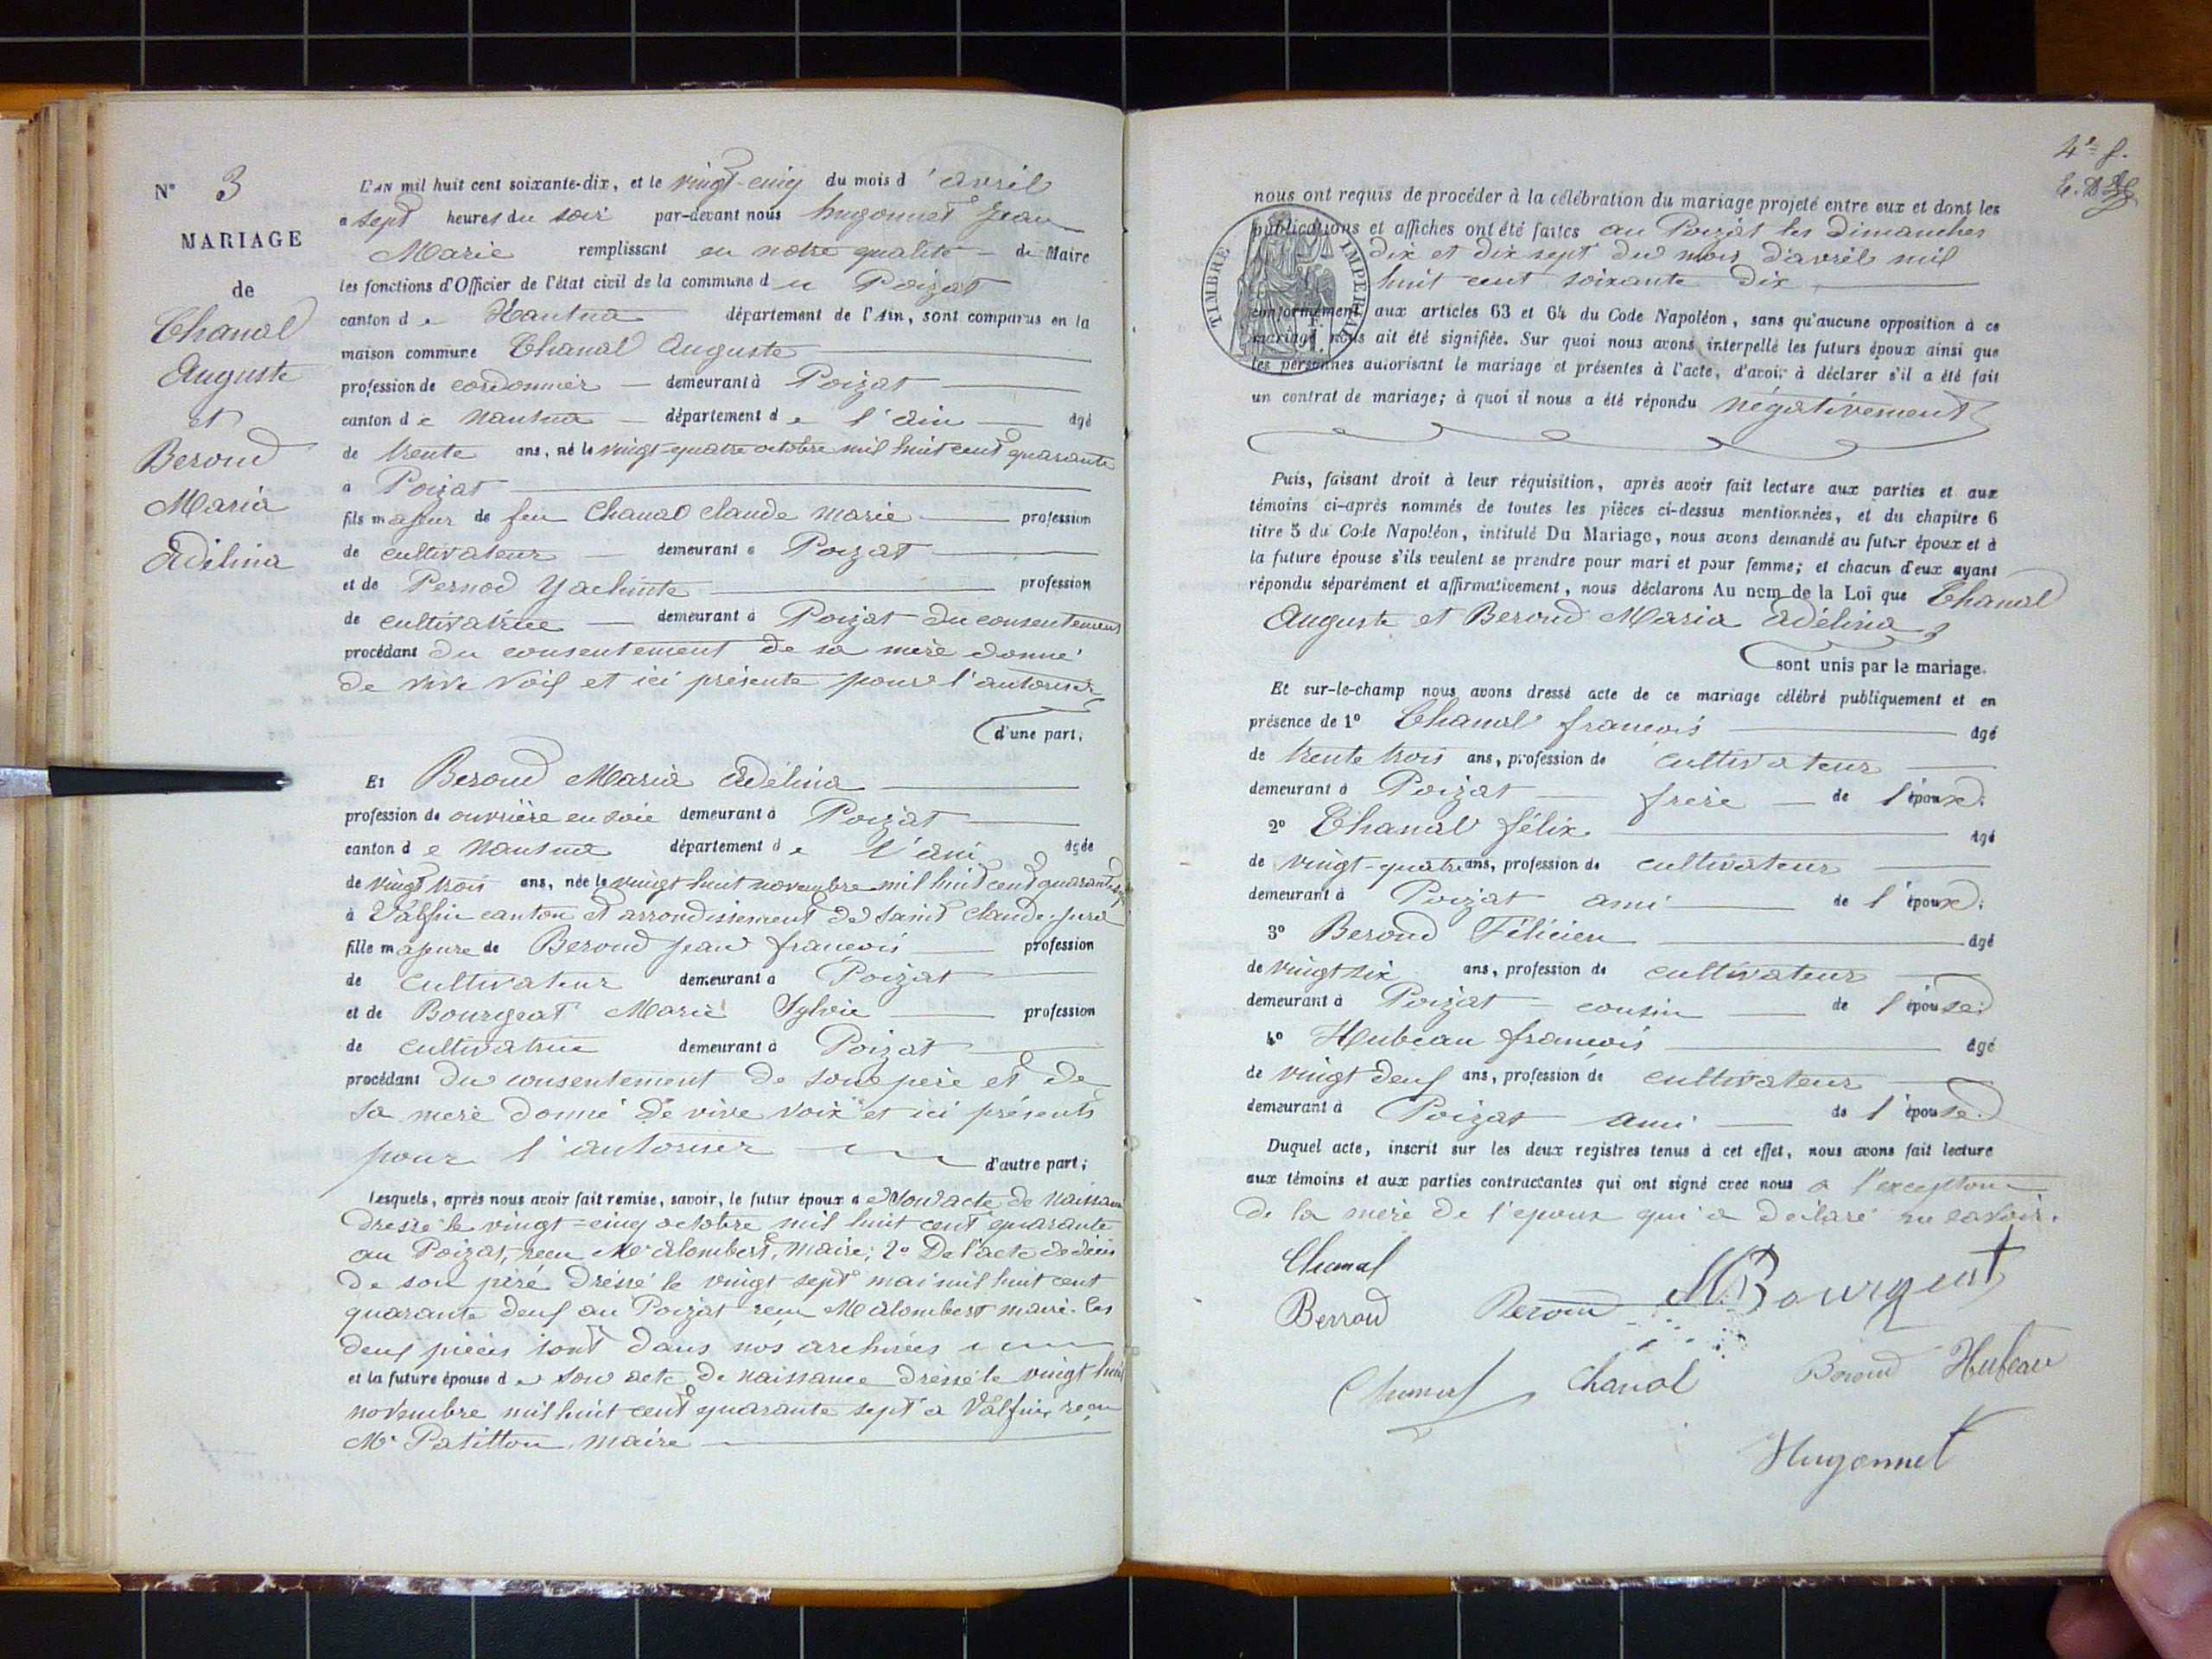 N° 3
MARIAGE
de
Chanal
Auguste
et
Beroud
Maria
Adélina
L'AN mil huit cent soixante-dix, et le vingt-cinq du mois d'avril
a sept heures du soir par-devant nous hugonnet Jean
Marie remplissant en notre qualité de Maire
les fonctions d'Officier de l'état civil de la commune du Poizat
canton de Nantua département de l'Ain, sont comparus en la
maison commune Chanal Auguste
profession de cordonnier demeurant à Poizat
canton de Nantua département de l'ain âgé
de trente ans, né le vingt-quatre octobre mil huit cent quarante
a Poizat
fils majeur de feu Chanal Claude marie profession
de cultivateur demeurant a Poizat
et de Pernod Yachinte profession
de cultivatrice demeurant à Poizat du consentement
procédant du consentement de sa mère donné
de vive voif et ici présente pour l'autoriser
d'une part;
Et Beroud Maria Adélina
profession de ouvrière en soie demeurant à Poizat
canton de Nantua département de l'ain âgée
de vingt trois ans, née le vingt huit novembre mil huit cent quarante sept
à Valfin canton et arrondissement de Saint Claude-jura
fille majeure de Beroud jean françois profession
de cultivateur demeurant a Poizat
et de Bourgeat Marie Sylvie profession
de cultivatrice demeurant à Poizat
procédant du consentement de son père et de
sa mère donné de vive voix et ici présents
pour l'autoriser d'autre part;
Lesquels, après nous avoir fait remise, savoir, le futur époux de son acte de naissance
dressé le vingt=cinq octobre mil huit cent quarante
au Poizat, reçu Mr alombert, maire; 2° De l'acte de décès
de son père dressé le vingt sept mai mil huit cent
quarante deuf au Poizat reçu M alombert maire. les
deuf pièces sont dans nos archives
et la future épouse de son acte de naissance dressé le vingt huit
novembre mil huit cent quarante sept a Valfin, reçu
Mr Patillon, maire
4e f.
nous ont requis de procéder à la célébration du mariage projeté entre eux et dont les
publications et affiches ont été faites au Poizat les dimanches
dix et dix sept du mois d'avril mil
huit cent soixante dix
TIMBRE IMPERIAL
conformément aux articles 63 et 64 du Code Napoléon, sans qu'aucune opposition à ce
mariage nous ait été signifiée. Sur quoi nous avons interpellé les futurs époux ainsi que
les personnes autorisant le mariage et présentes à l'acte, d'avoir à déclarer s'il a été fait
un contrat de mariage; à quoi il nous a été répondu négativement
Puis, faisant droit à leur réquisition, après avoir fait lecture aux parties et aux
témoins ci-après nommés de toutes les pièces ci-dessus mentionnées, et du chapitre 6
titre 5 du Code Napoléon, intitulé Du Mariage, nous avons demandé au futur époux et à
la future épouse s'ils veulent se prendre pour mari et pour femme; et chacun d'eux ayant
répondu séparément et affirmativement, nous déclarons Au nom de la Loi que Chanal
Auguste et Beroud Maria Adélina
sont unis par le mariage.
Et sur-le-champ nous avons dressé acte de ce mariage célébré publiquement et en
présence de 1° Chanal francois âgé
de trente trois ans, profession de cultivateur
demeurant à Poizat frère de l'époux.
2° Chanal félix âgé
de vingt-quatre ans, profession de cultivateur
demeurant à Poizat ami de l'époux.
3° Beroud Félicien âgé
de vingt six ans, profession de cultivateur
demeurant à Poizat cousin de l'épouse.
4° Hubeau francois âgé
de vingt deuf ans, profession de cultivateur
demeurant à Poizat ami de l'épouse.
Duquel acte, inscrit sur les deux registres tenus à cet effet, nous avons fait lecture
aux témoins et aux parties contractantes qui ont signé avec nous a l'exception
de la mère de l'epoux qui a déclaré ne savoir.
Chanal
Berroud Beroud M.Bourgeat
Chanal Chanal Beroud Hubeau
Hugonnet